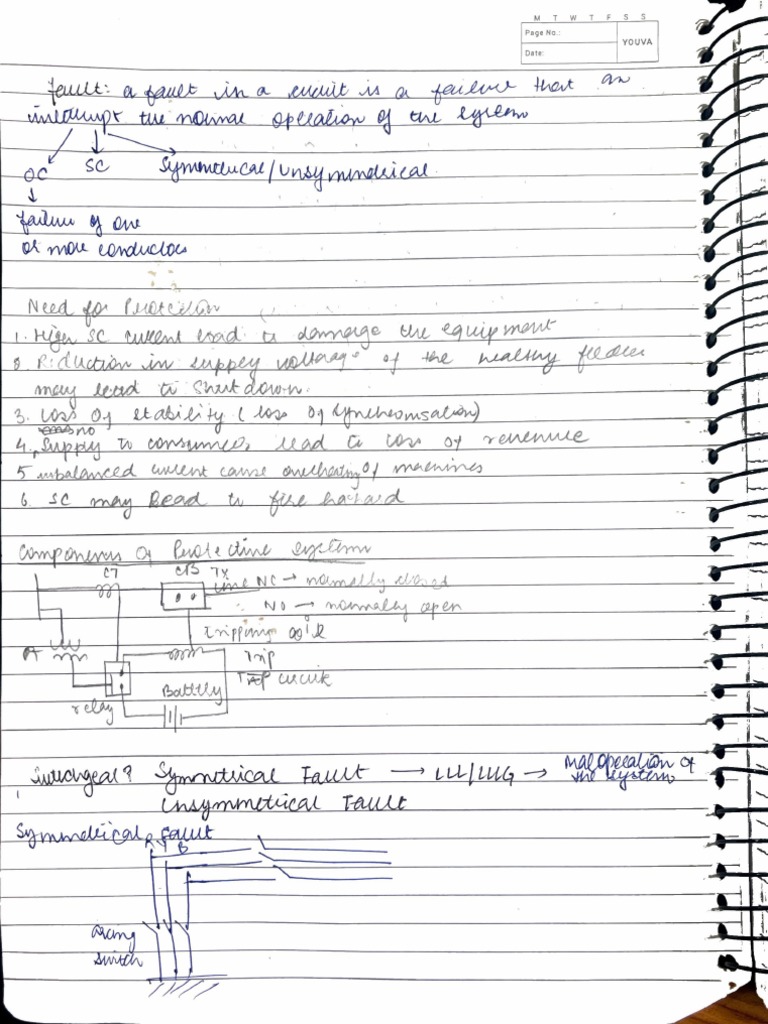 M T W T F S S
Page No.:
YOUVA
Date:
fault: a fault in a circuit is a failure that an
interrupt the normal operation of the system
OC SC Symmetrical/Unsymmetrical
failure of one
or more conductors
Need for Protection
1. High SC current lead to damage the equipment
2. Reduction in supply voltage of the healthy feeder
may lead to Shutdown.
3. Loss of stability (loss of synchronisation)
no
4. Supply to consumer, lead to loss of revenue
5 unbalanced current cause overheating of machines
6. SC may lead to fire hazard
Components of Protective system
CT CB Tx
line NC → normally closed
NO → normally open
Tripping coil
PT Trip
Trip circuit
Battery
relay
Switchgear? Symmetrical Fault → LLL/LLLG → maloperation of
the system
Unsymmetrical Fault
Symmetrical fault
R Y B
switch